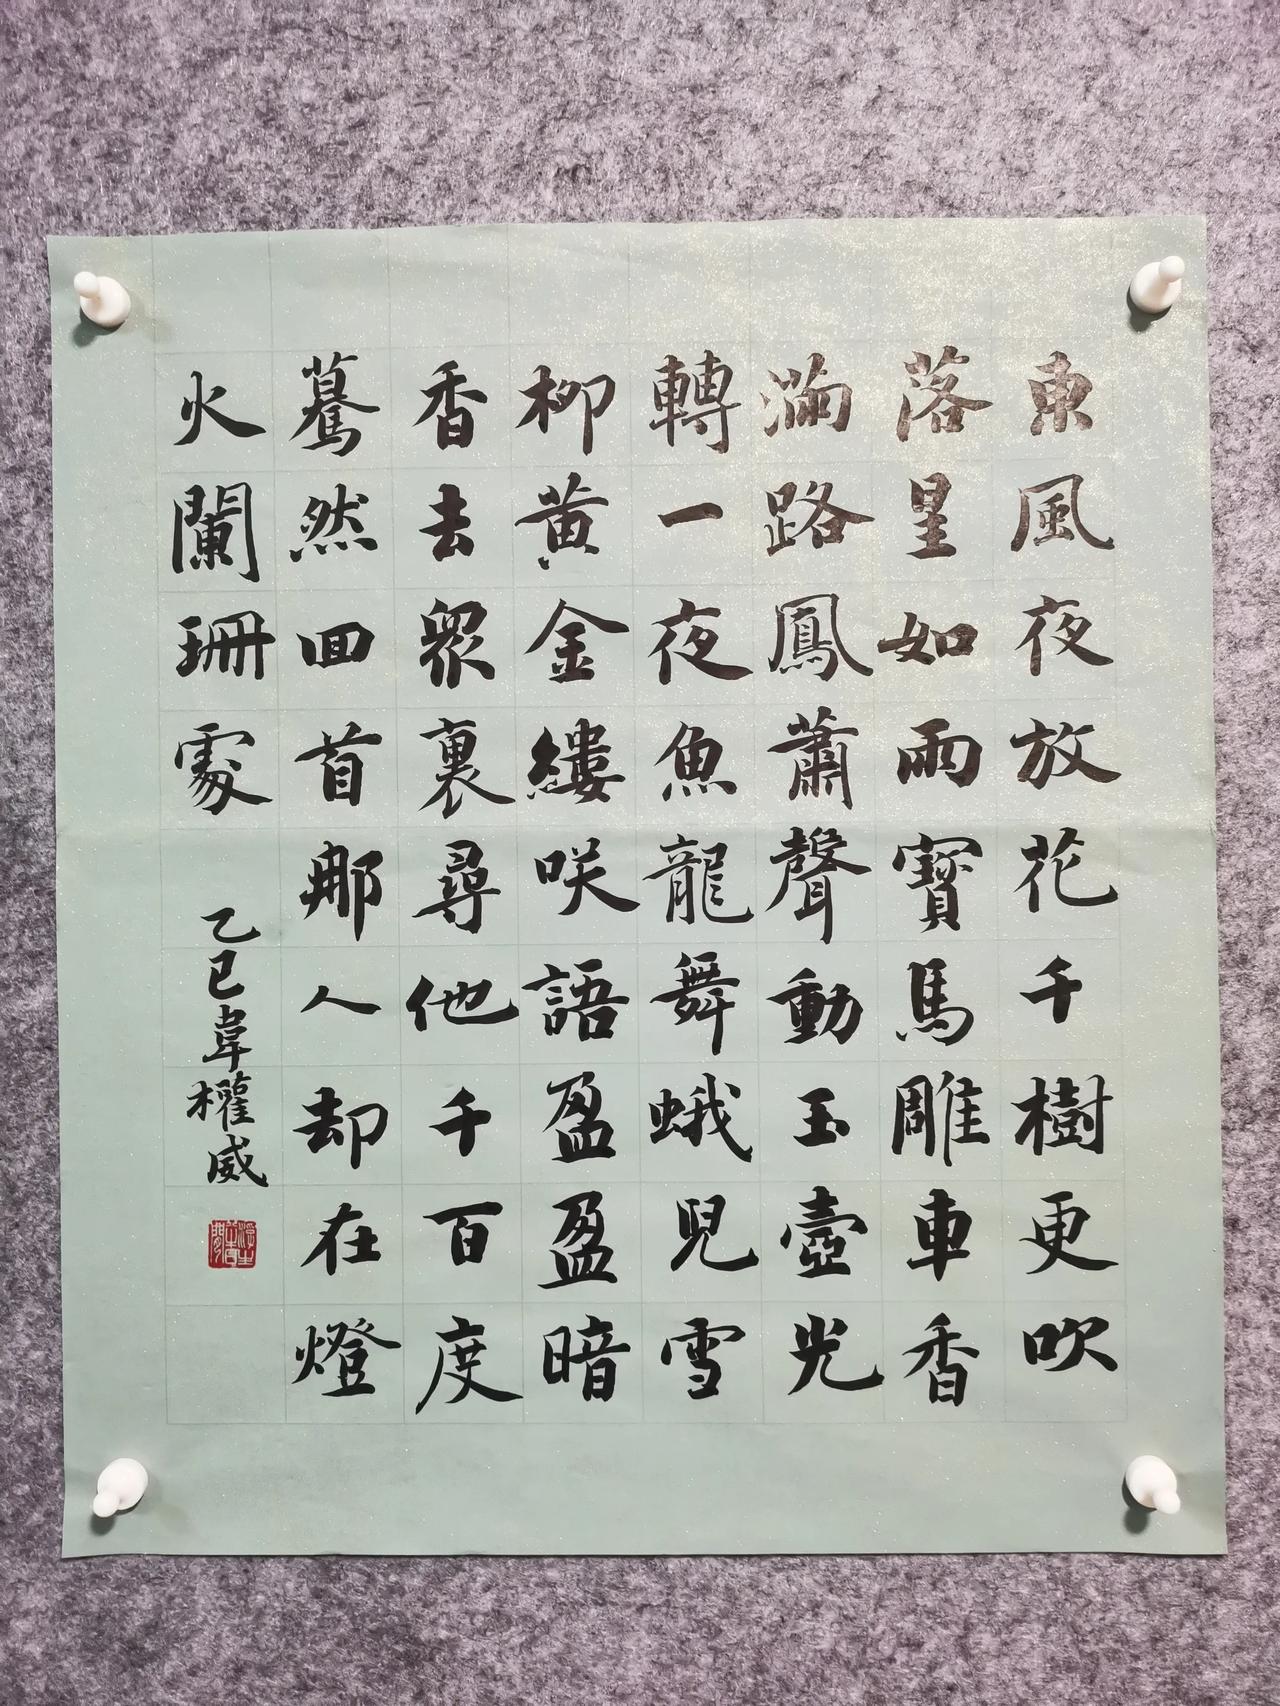 東風夜放花千樹更吹
落星如雨寶馬雕車香
滿路鳳蕭聲動玉壺光
轉一夜魚龍舞蛾兒雪
柳黄金縷咲語盈盈暗
香去衆裏尋他千百度
驀然回首那人却在燈
火闌珊處
乙巳韋權威